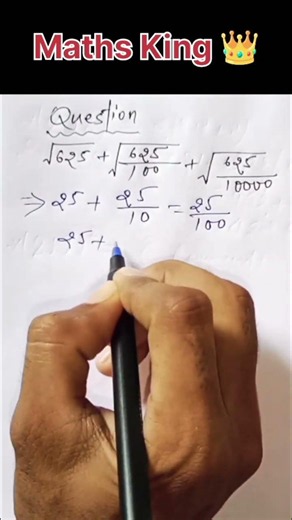 Maths King 👑
Question
√625 + √(625/100) + √(625/10000)
⇒ 25 + 25/10 = 25/100
25 +